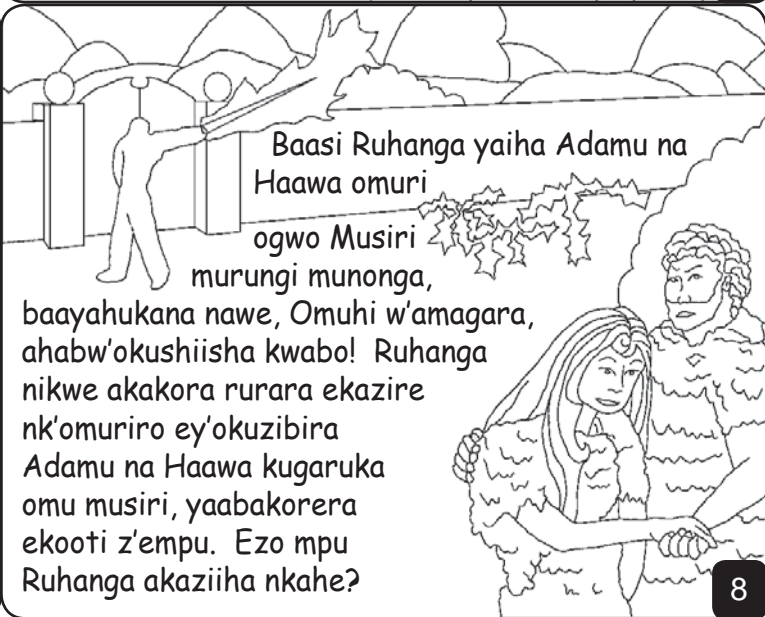 Baasi Ruhanga yaiha Adamu na
Haawa omuri
ogwo Musiri
murungi munonga,
baayahukana nawe, Omuhi w'amagara,
ahabw'okushiisha kwabo! Ruhanga
nikwe akakora rurara ekazire
nk'omuriro ey'okuzibira
Adamu na Haawa kugaruka
omu musiri, yaabakorera
ekooti z'empu. Ezo mpu
Ruhanga akaziiha nkahe?
8